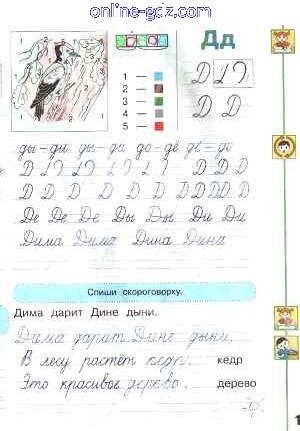 online-gdz.com
Дд
1 —
2 —
3 —
4 —
5 —
Д
Д Д
ды – ди ды – ди до – дё дё – до
Д Д Д Д
Д Д Д Д Д Д Д Д Д Д
Де Де Де Ды Ды Ди Ди
Дима Дима Дина Дина
Спиши скороговорку.
Дима дарит Дине дыни.
Дима дарит Дине дыни.
В лесу растёт кедр. кедр
Это красивое дерево. дерево
1